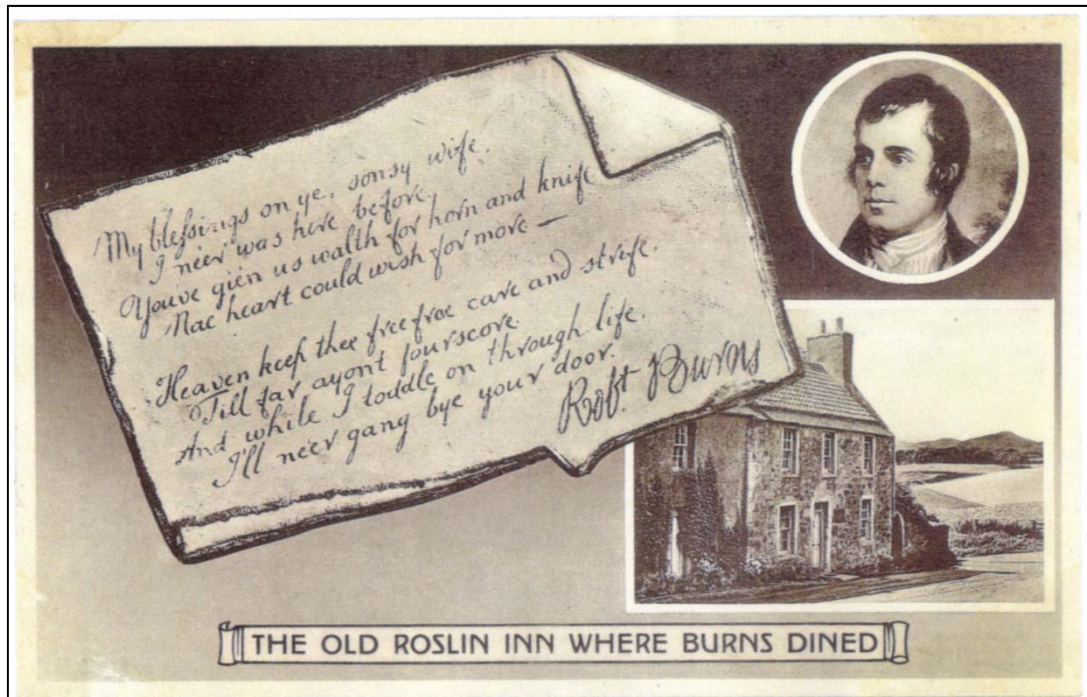 My blessings on ye, sonsy wife.
I neer was here before.
Youve gien us walth for horn and knife
Nae heart could wish for more —
Heaven keep thee free frae care and strife.
Till far ayont fourscore.
And while I toddle on through life.
I'll neer gang bye your door.
Robt. Burns
THE OLD ROSLIN INN WHERE BURNS DINED